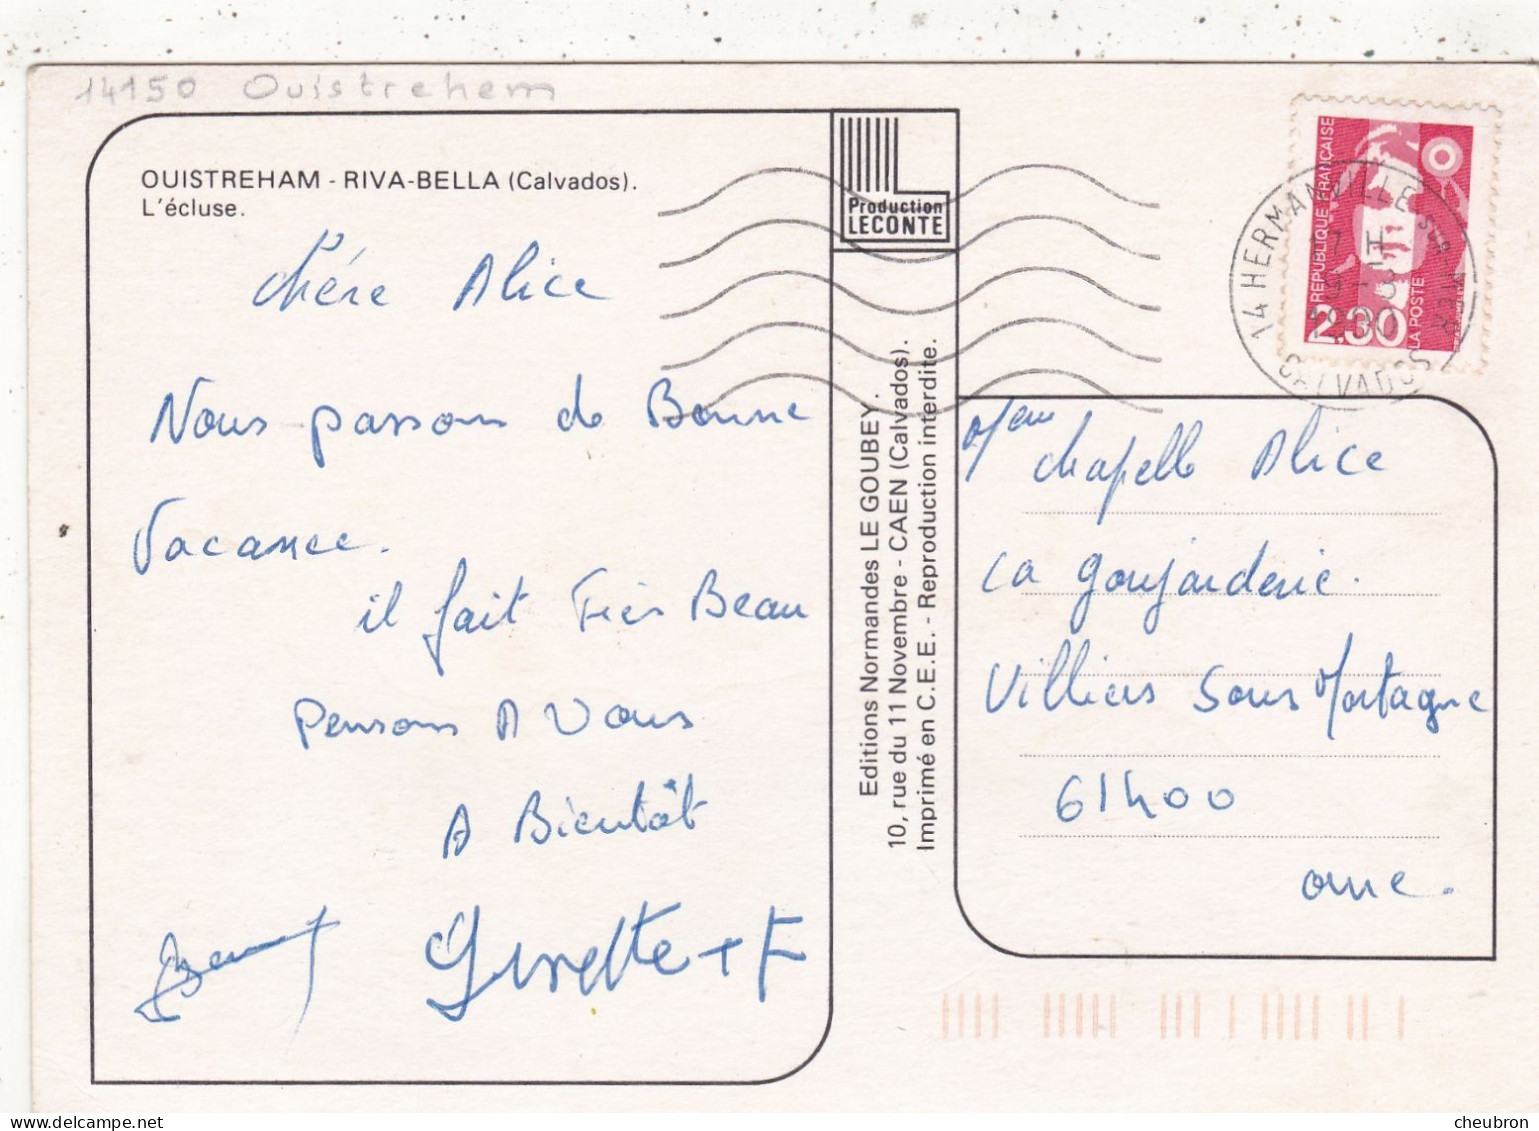 14150 Ouistrehem
OUISTREHAM - RIVA-BELLA (Calvados).
L'écluse.
Chére Alice
Nous passons de Bonne
Vacance.
il fait Très Beau
Pensons A Vous
A Bientôt
Ginette + F
Production
LECONTE
Editions Normandes LE GOUBEY.
10, rue du 11 Novembre - CAEN (Calvados).
Imprimé en C.E.E. - Reproduction interdite.
REPUBLIQUE FRANÇAISE
2.30
LA POSTE
14 HERMANVILLE SUR-MER
17 H
CALVADOS
Mem
Chapelle Alice
La Goujarderie.
Villiers Sous Mortagne
61400
orne.
cheubron